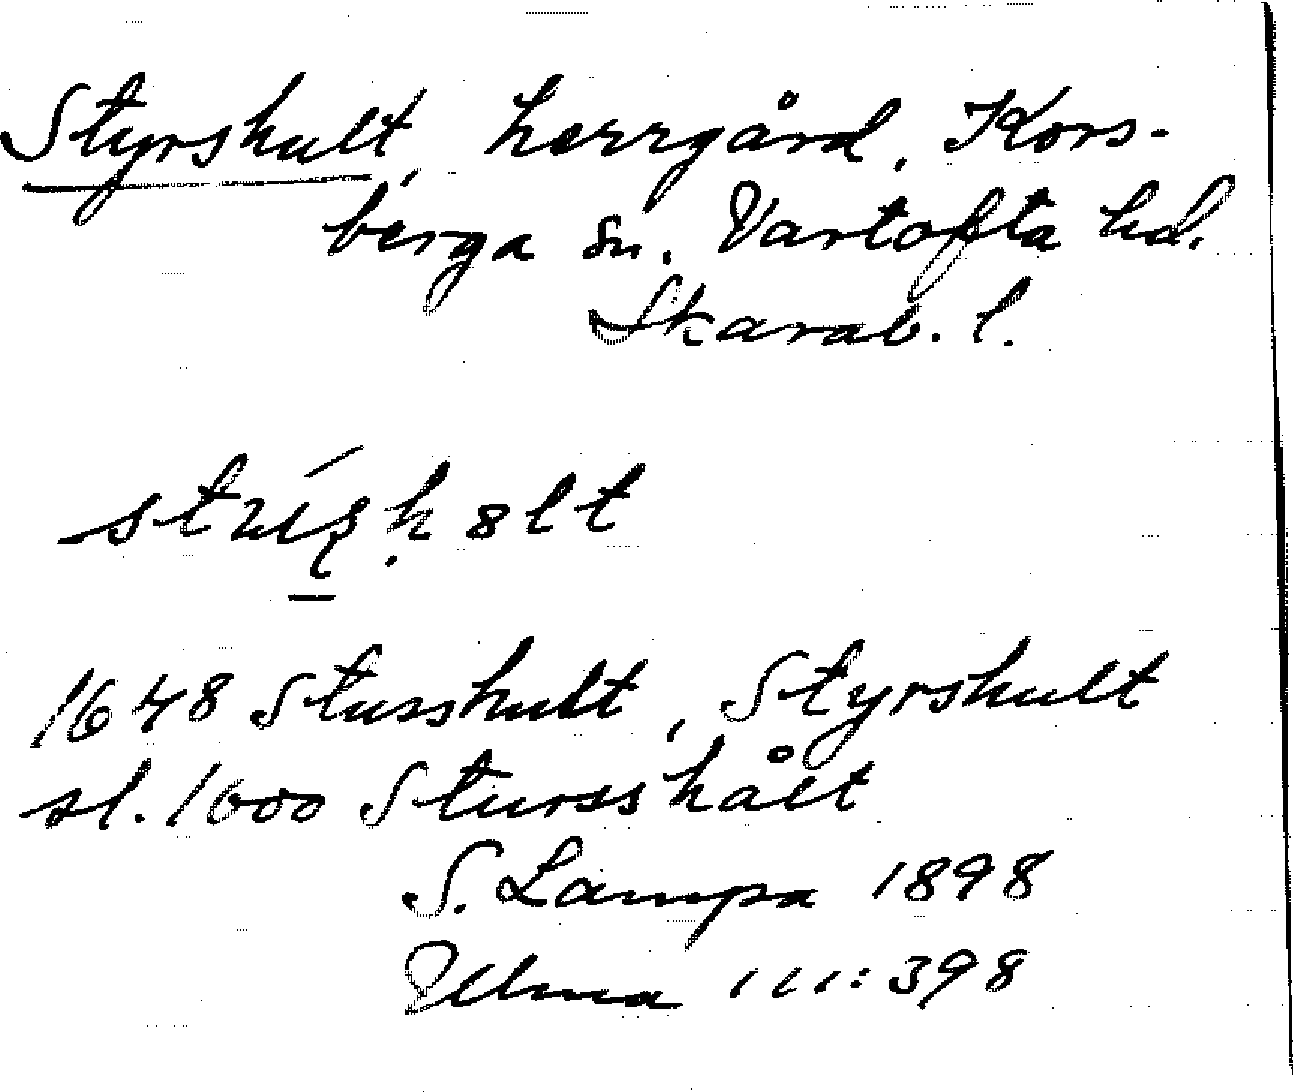 Styrshult, herrgård, Kors-
berga sn. Vartofta hd.
Skarab. l.
1648 Stusshult, Styrshult
sl. 1600 Stursshält
S. Lampa 1898
Ulma 111:398